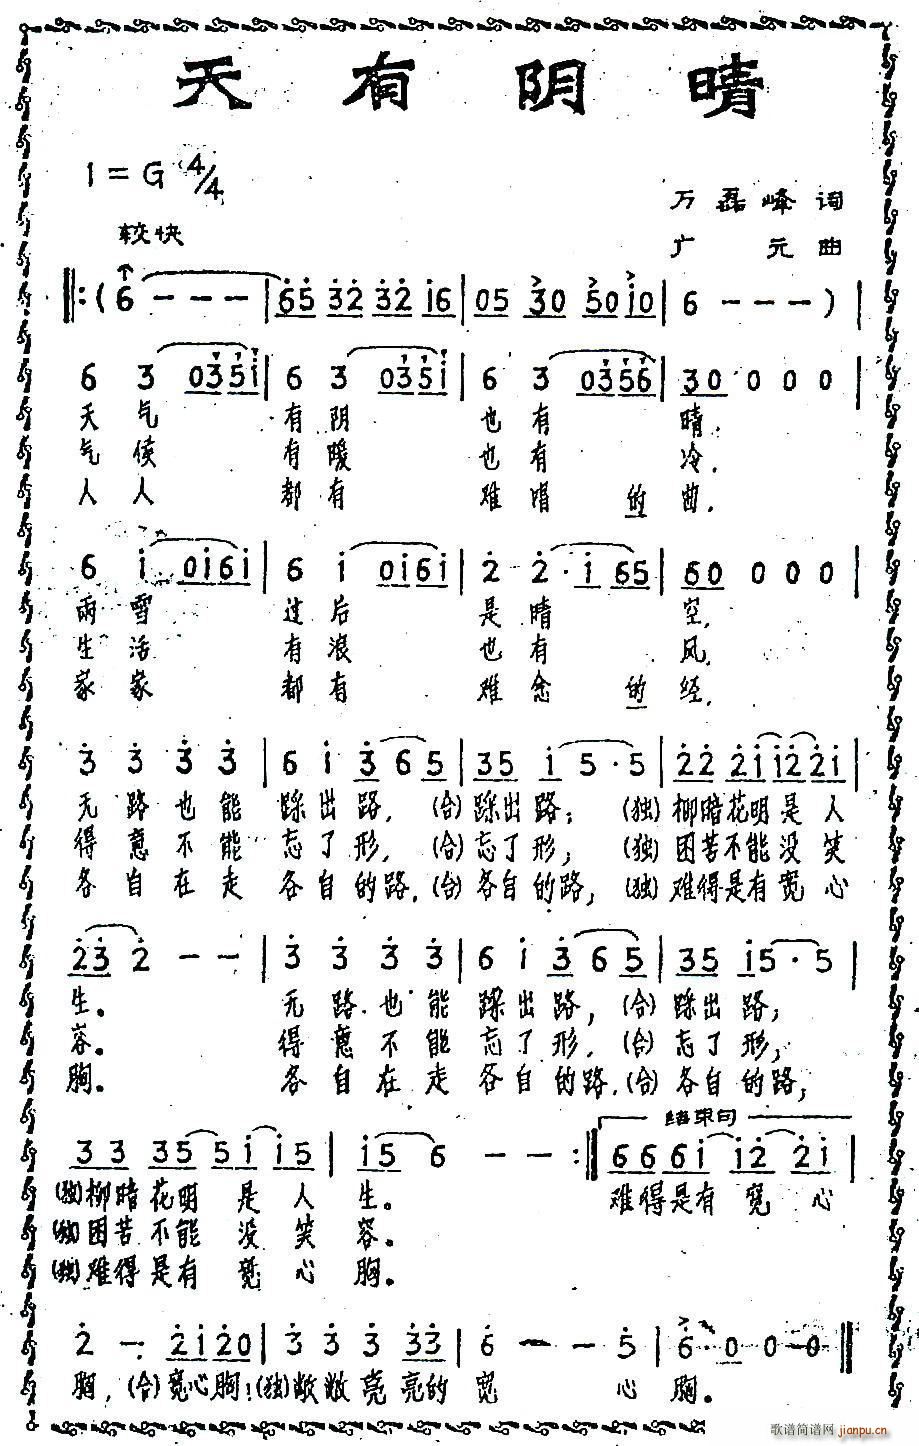 天有阴晴
1=G 4/4
万磊峰 词
较快
广元 曲
‖:(6 - - - | 65 32 32 16 | 05 30 50 10 | 6 - - - ) |
6 3 0351 | 6 3 0351 | 6 3 0356 | 30 0 0 0 |
天气 有阴 也有 晴.
气候 有暖 也有 冷.
人人 都有 难唱 的曲.
6 1 0161 | 6 1 0161 | 2 2·1 65 | 60 0 0 0 |
雨雪 过后 是晴 空,
生活 有浪 也有 风,
家家 都有 难念 的经,
3 3 3 3 | 6 1 3 6 5 | 35 1 5·5 | 22 21 12 21 |
无路也能 踩出路,(合)踩出路;(独)柳暗花明是人
得意不能 忘了形,(合)忘了形;(独)困苦不能没笑
各自在走 各自的路.(合)各自的路,(独)难得是有宽心
23 2 - - | 3 3 3 3 | 6 1 3 6 5 | 35 15·5 |
生。 无路也能 踩出路,(合)踩出路;
容。 得意不能 忘了形.(合)忘了形;
胸。 各自在走 各自的路.(合)各自的路,
结束句
33 35 51 15 | 15 6 - - :‖ 66 61 12 21 |
(独)柳暗花明是人生。 难得是有宽心
(独)困苦不能没笑容。
(独)难得是有宽心胸。
2 - 21 20 | 3 3 3 33 | 6 - - 5 | 6·0 0 0 ‖
胸,(合)宽心胸!(独)敞敞亮亮的宽 心胸。
歌谱简谱网
jianpu.cn